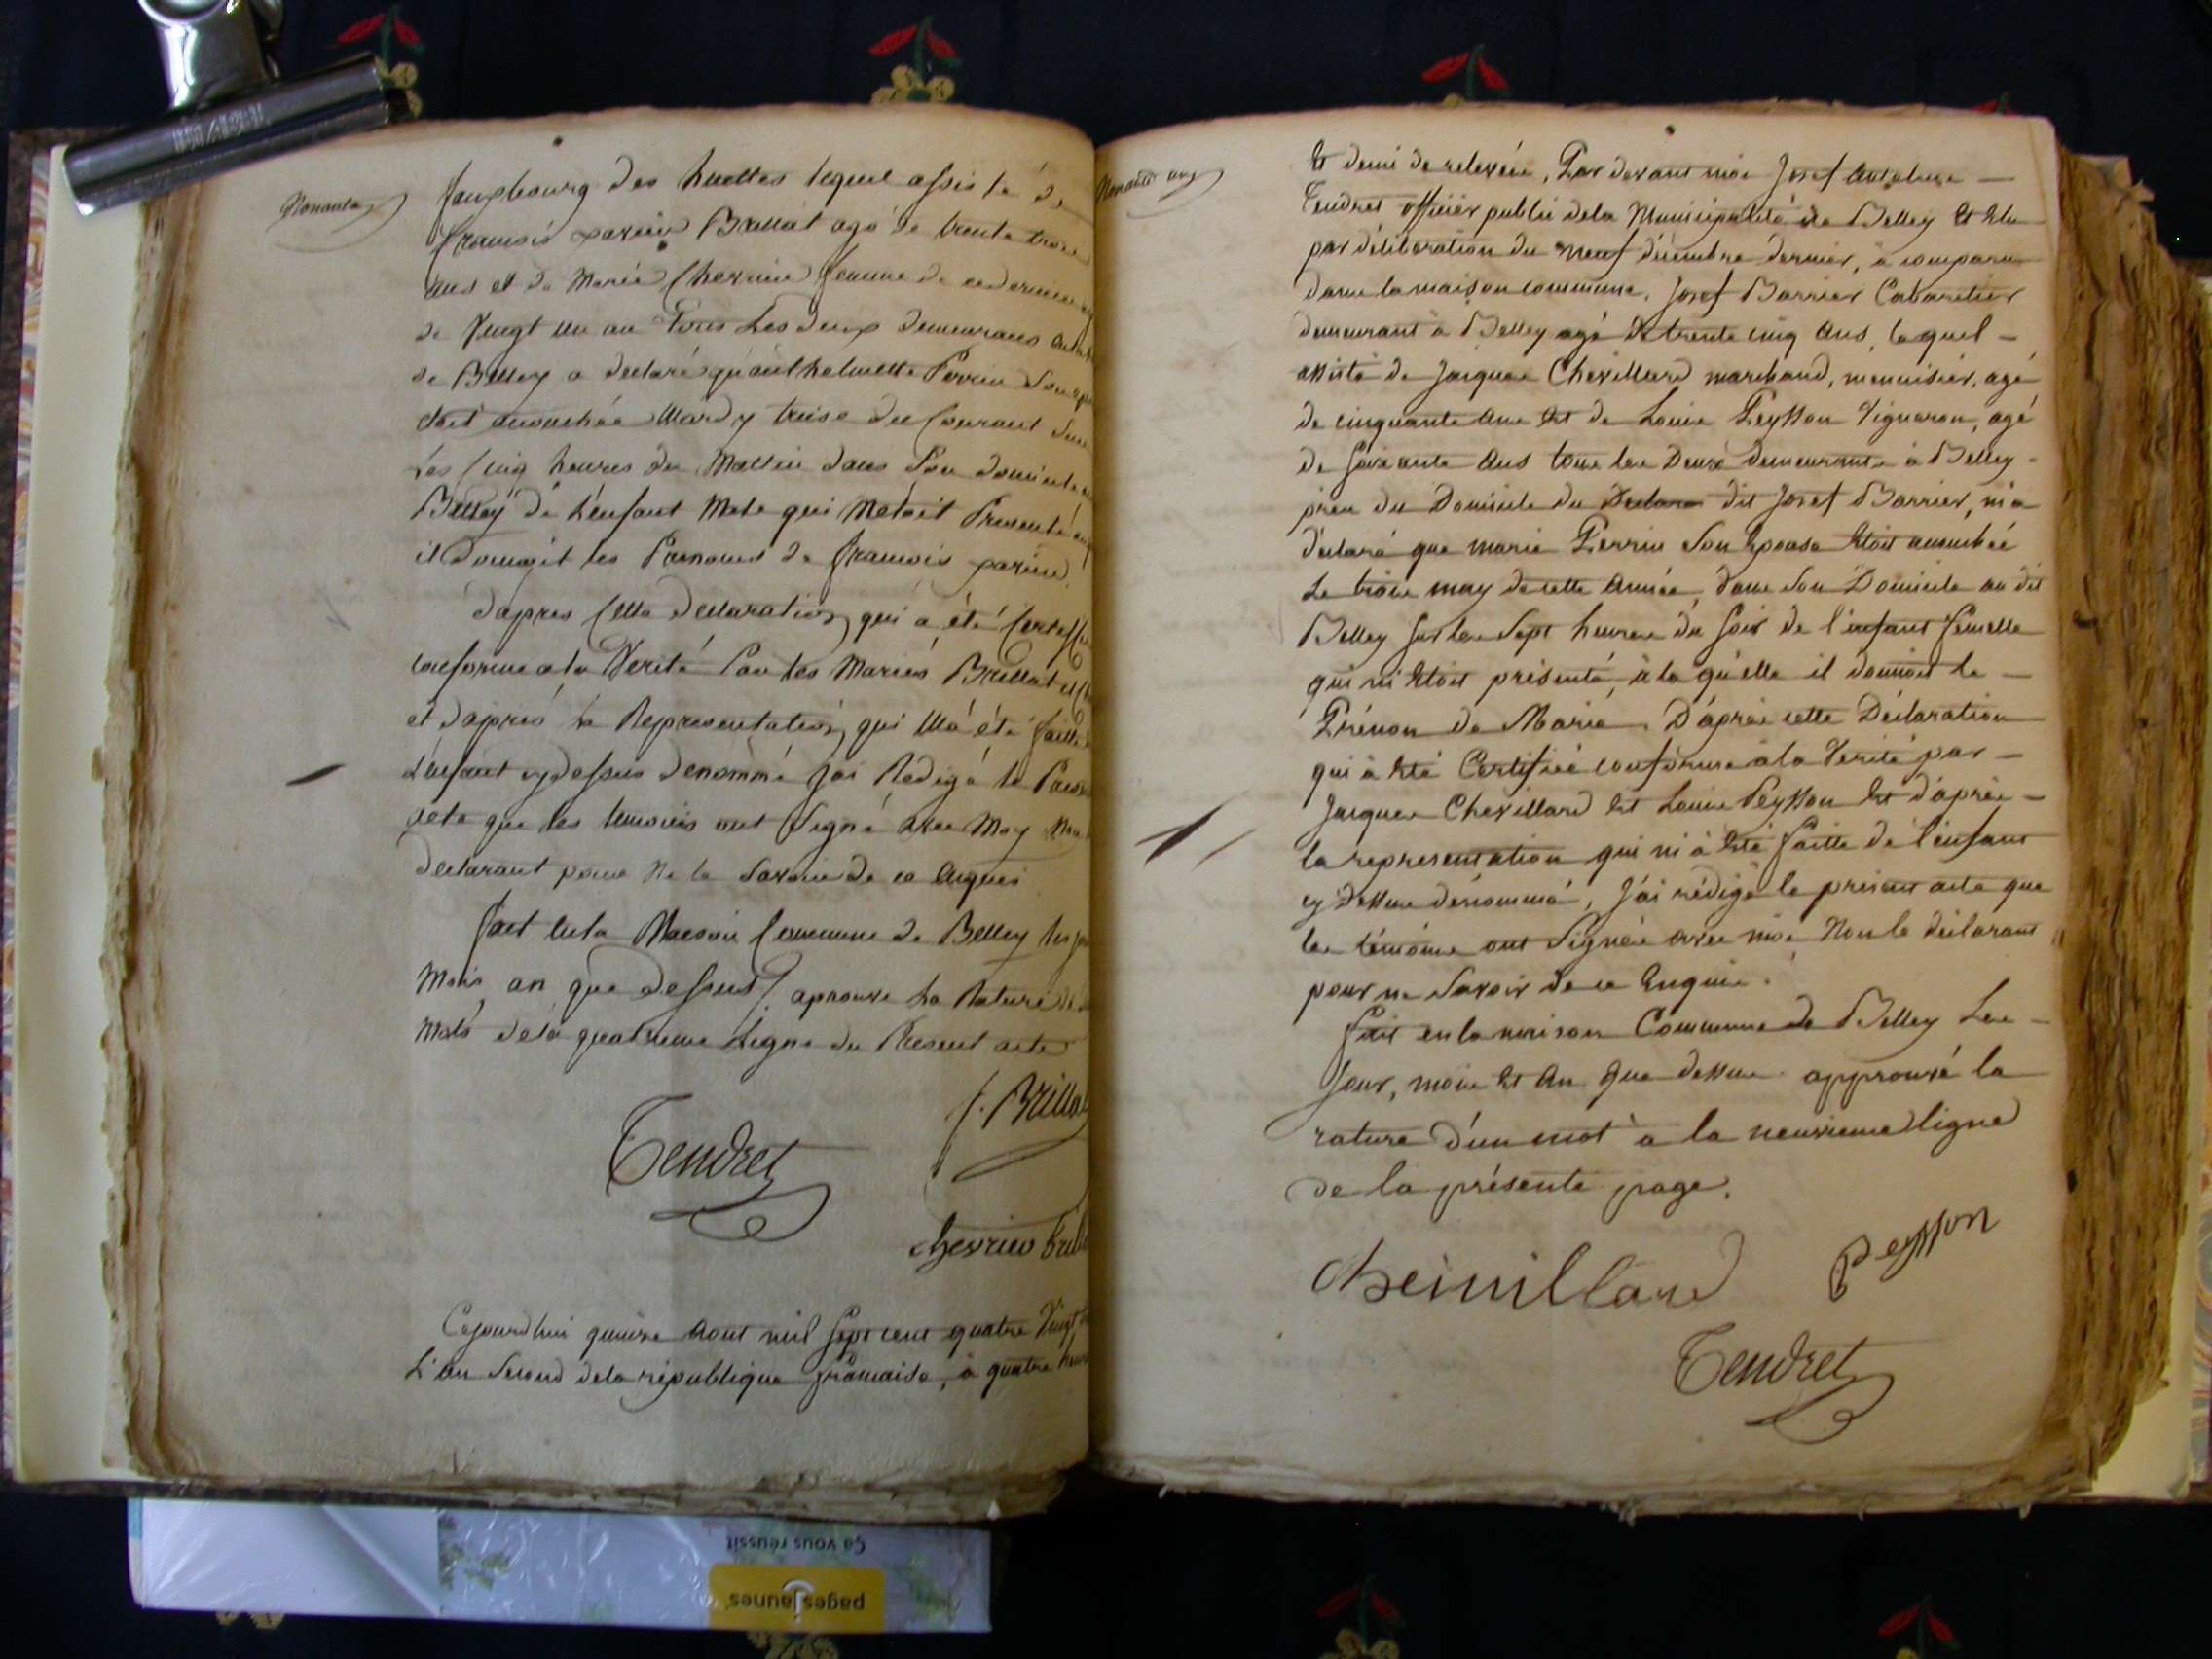 Nonante
fauxbourg des huottes lequel assisté de
francois xavier Brillat agé de trente trois
ans et de Marie Chervin femme de ce dernier
de Vingt un an Tous Les deux demeurans
de Belley a declaré qu'anthelmette Perrin Son
étoit acouchée Mardy treise du Courant Sur
Les Cinq heures du Mattin dans Son domicile
Belley de L'enfant Male qui M'etoit Presenté
il Donnoit les Prenoms de francois xavier
d'apres Cette declaration qui a été Certiffié
conforme a la Verité Par les Mariés Brillat
et d'aprés la Representation qui M'a été faitte
L'enfant cy dessus denommé J'ai Redigé le
acte que les temoins ont Signé avec Moy Non
declarant pour Ne le Savoir de ce Enquis
fait en la Maison Commune de Belley les
Mois, an que dessus / aprouve La Rature
Mots de la quatrieme Ligne du Present acte
Tendret
f. Brilla
chervin bril
Cejourd'hui quinze Aout mil sept cent quatre Vingt
L'an Second de la république francaise, à quatre heur
Nonante un
Et demi de relevée, Par devant moi Josef Antelme —
Tendret officier public de la Municipalité de Belley Et Elu
par déliberation du neuf décembre dernier, à comparu
dans la maison commune, Josef Barrier Cabaretier
demeurant à Belley agé de trente cinq Ans, lequel —
assisté de Jacques Chevillard marchand, menuisier, agé
de cinquante Ans Et de Louis Peysson Vigneron, agé
de soixante Ans tous les Deux demeurants à Belley
près du Domicile du Declara dit Josef Barrier, m'a
déclaré que marie Perrin Son Epouse Etoit acouchée
Le trois may de cette Année, dans Son Domicile au dit
Belley Sur les Sept heures du Soir de l'enfant femelle
qui m'Etoit présenté, à laquelle il donnoit le —
Prénom de Marie. D'après cette Déclaration
qui à Eté Certifiée conforme à la Verité par —
Jacques Chevillard Et Louis Peysson Et d'après —
la representation qui m'à Eté faitte de l'enfant
cy Dessus dénommé, J'ai rédigé le présent acte que
les témoins ont Signés avec moi Non le déclarant
pour ne Savoir de ce Enquis.
fait en la maison Commune de Belley Les —
Jour, mois Et An que dessus. approuvé la
rature d'un mot à la neuvieme ligne
de la présente page.
cheivillard
peysson
Tendret
Ça vous réussit
pagesJaunes